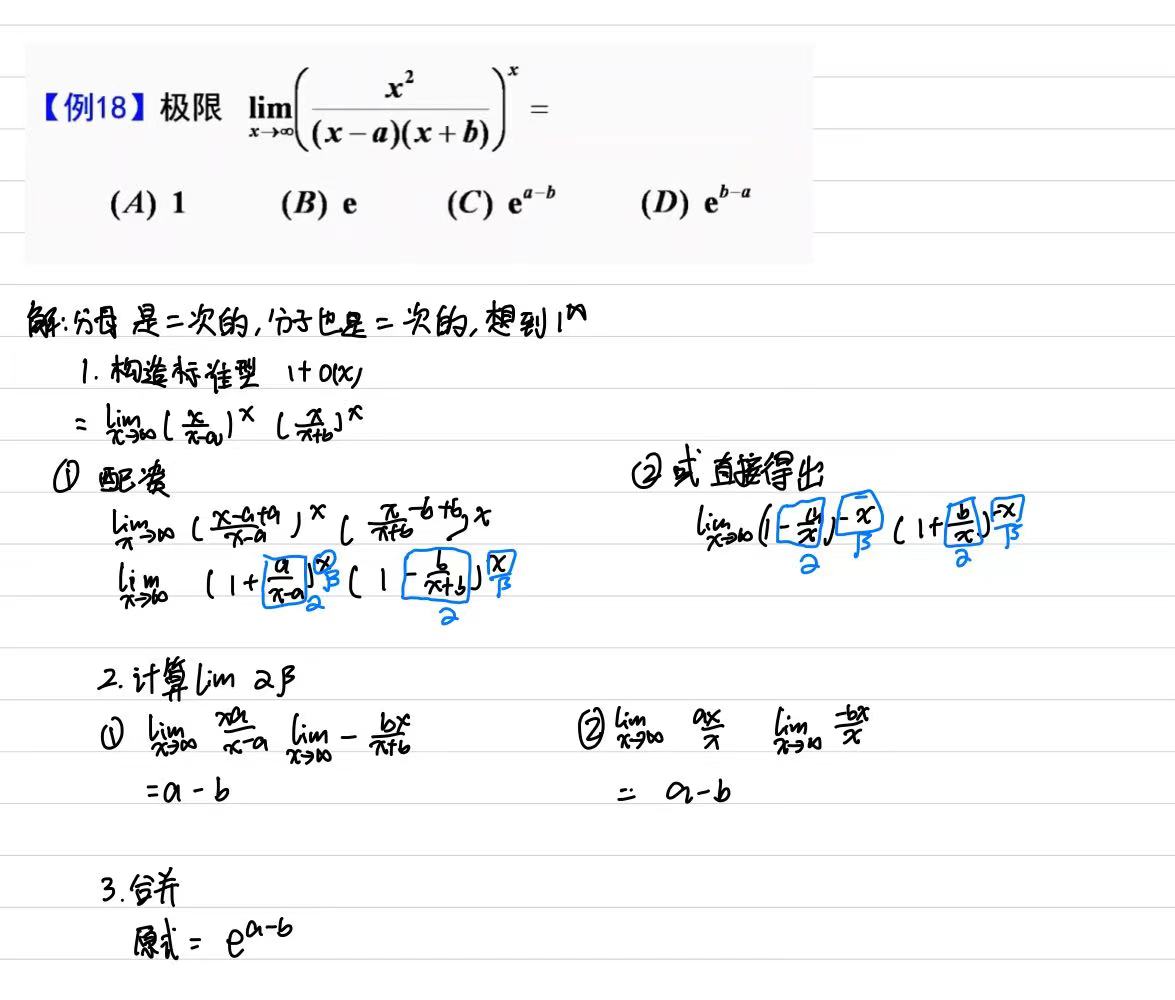 【例18】极限 lim x→∞ ( x² / (x − a)(x + b) )^x =
(A) 1 (B) e (C) e^(a−b) (D) e^(b−a)
解:分母是二次的,分子也是二次的,想到1^∞
1. 构造标准型 1+o(x)
= lim x→∞ (x/(x-a))^x (x/(x+b))^x
① 配凑
lim x→∞ ((x-a+a)/(x-a))^x ((x-b+b)/(x+b))^x
lim x→∞ (1+ a/(x-a))^x (1 - b/(x+b))^x
α β α β
② 或直接得出
lim x→∞ (1 - a/x)^(-x) (1 + b/x)^(-x)
α β α β
2. 计算 lim αβ
① lim x→∞ xa/(x-a) lim x→∞ - bx/(x+b)
= a - b
② lim x→∞ ax/x lim x→∞ -bx/x
= a-b
3. 合并
原式 = e^(a-b)